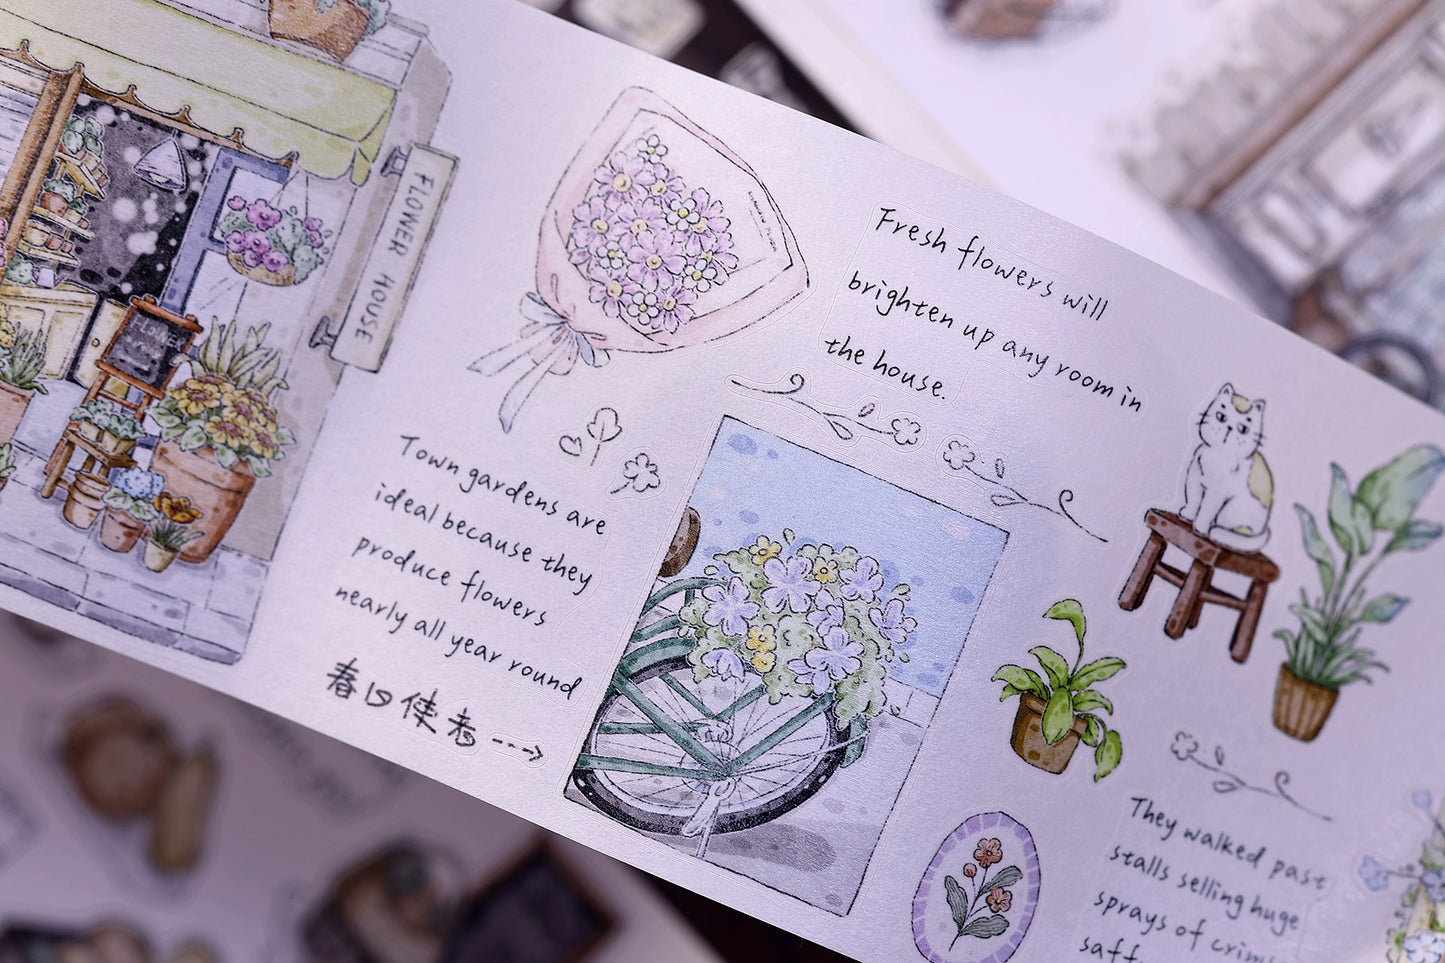 FLOWER HOUSE
FLOWER
Fresh flowers will
brighten up any room in
the house.
Town gardens are
ideal because they
produce flowers
nearly all year round
春日使者
They walked past
stalls selling huge
sprays of crim
saff